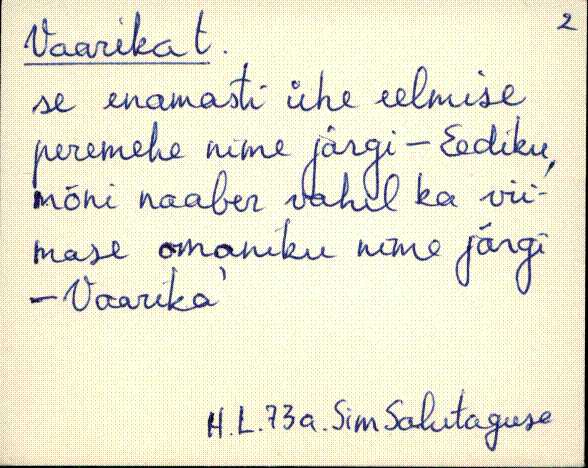 2
Vaarika t.
se enamasti ühe eelmise
peremehe nime järgi – Eediku,
mõni naaber vahel ka vii-
mase omaniku nime järgi
– Vaarika'
H.L.73a. Sim Salutaguse